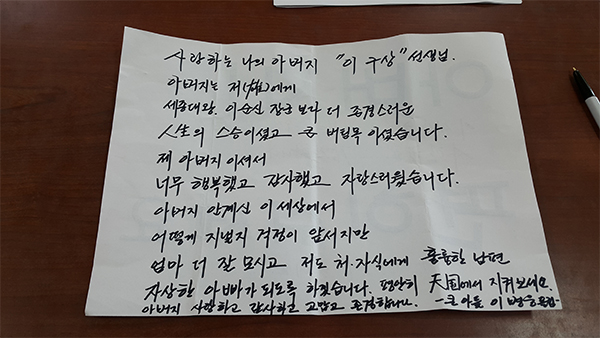 사랑하는 나의 아버지 "이 구상" 선생님.
아버지는 저(雄)에게
세종대왕. 이순신 장군 보다 더 존경스러운
人生의 스승이셨고 큰 버팀목 이셨습니다.
제 아버지 이셔서
너무 행복했고 감사했고 자랑스러웠습니다.
아버지 안계신 이 세상에서
어떻게 지낼지 걱정이 앞서지만
엄마 더 잘 모시고 저도 처·자식에게 훌륭한 남편
자상한 아빠가 되도록 하겠습니다. 편안히 天国에서 지켜보세요.
아버지 사랑하고 감사하고 고맙고 존경합니다. -큰아들 이